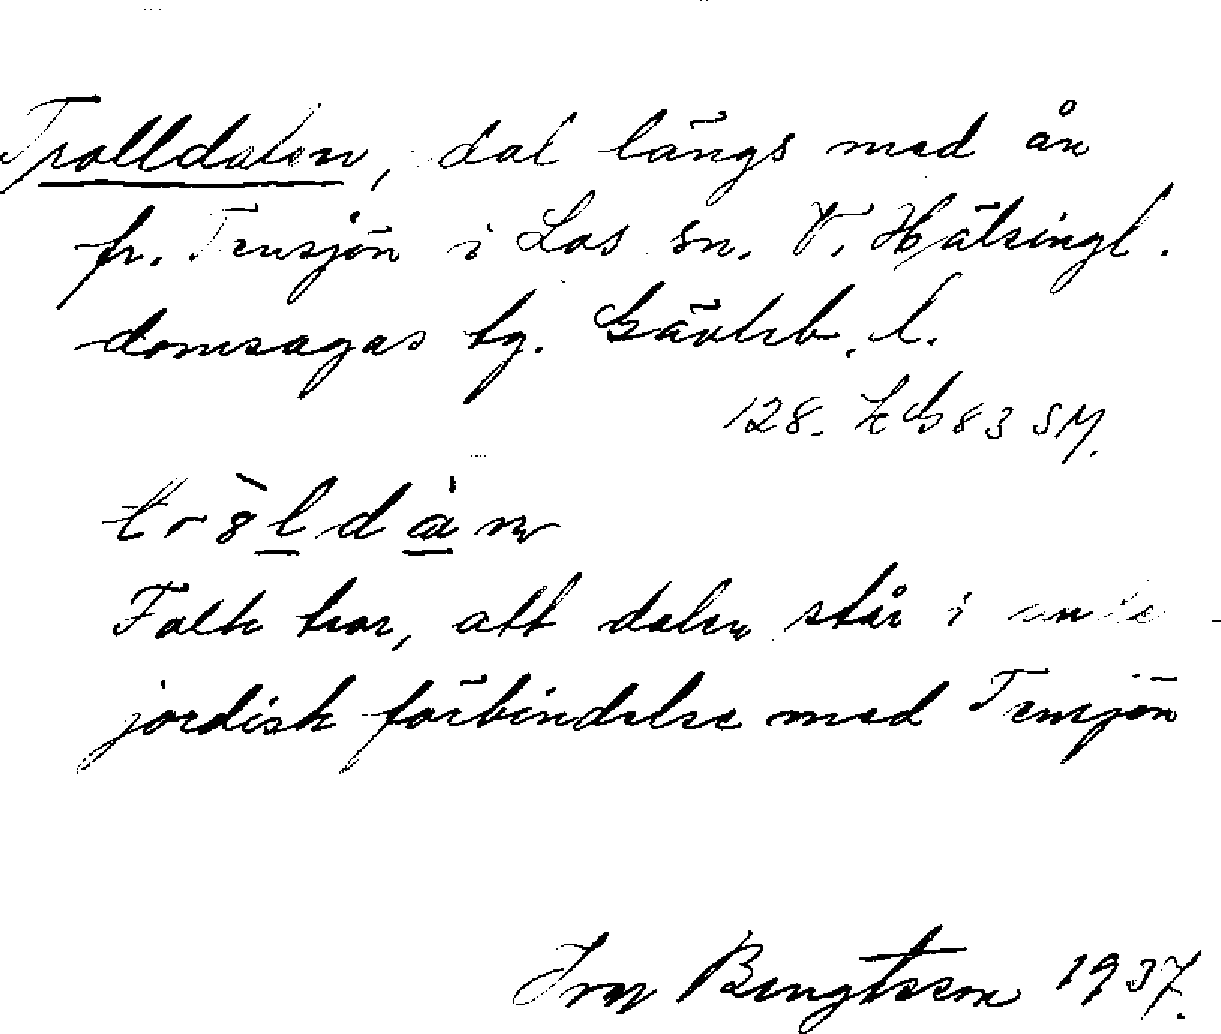 Trolldalen, dal längs med ån
fr. Tensjön i Los sn. V. Hälsingl.
domsagas tg. Gävleb. l.
128. 83 SM.
Folk tror, att dalen står i under-
jordisk förbindelse med Tensjön
Ivar Bengtsson 1937.